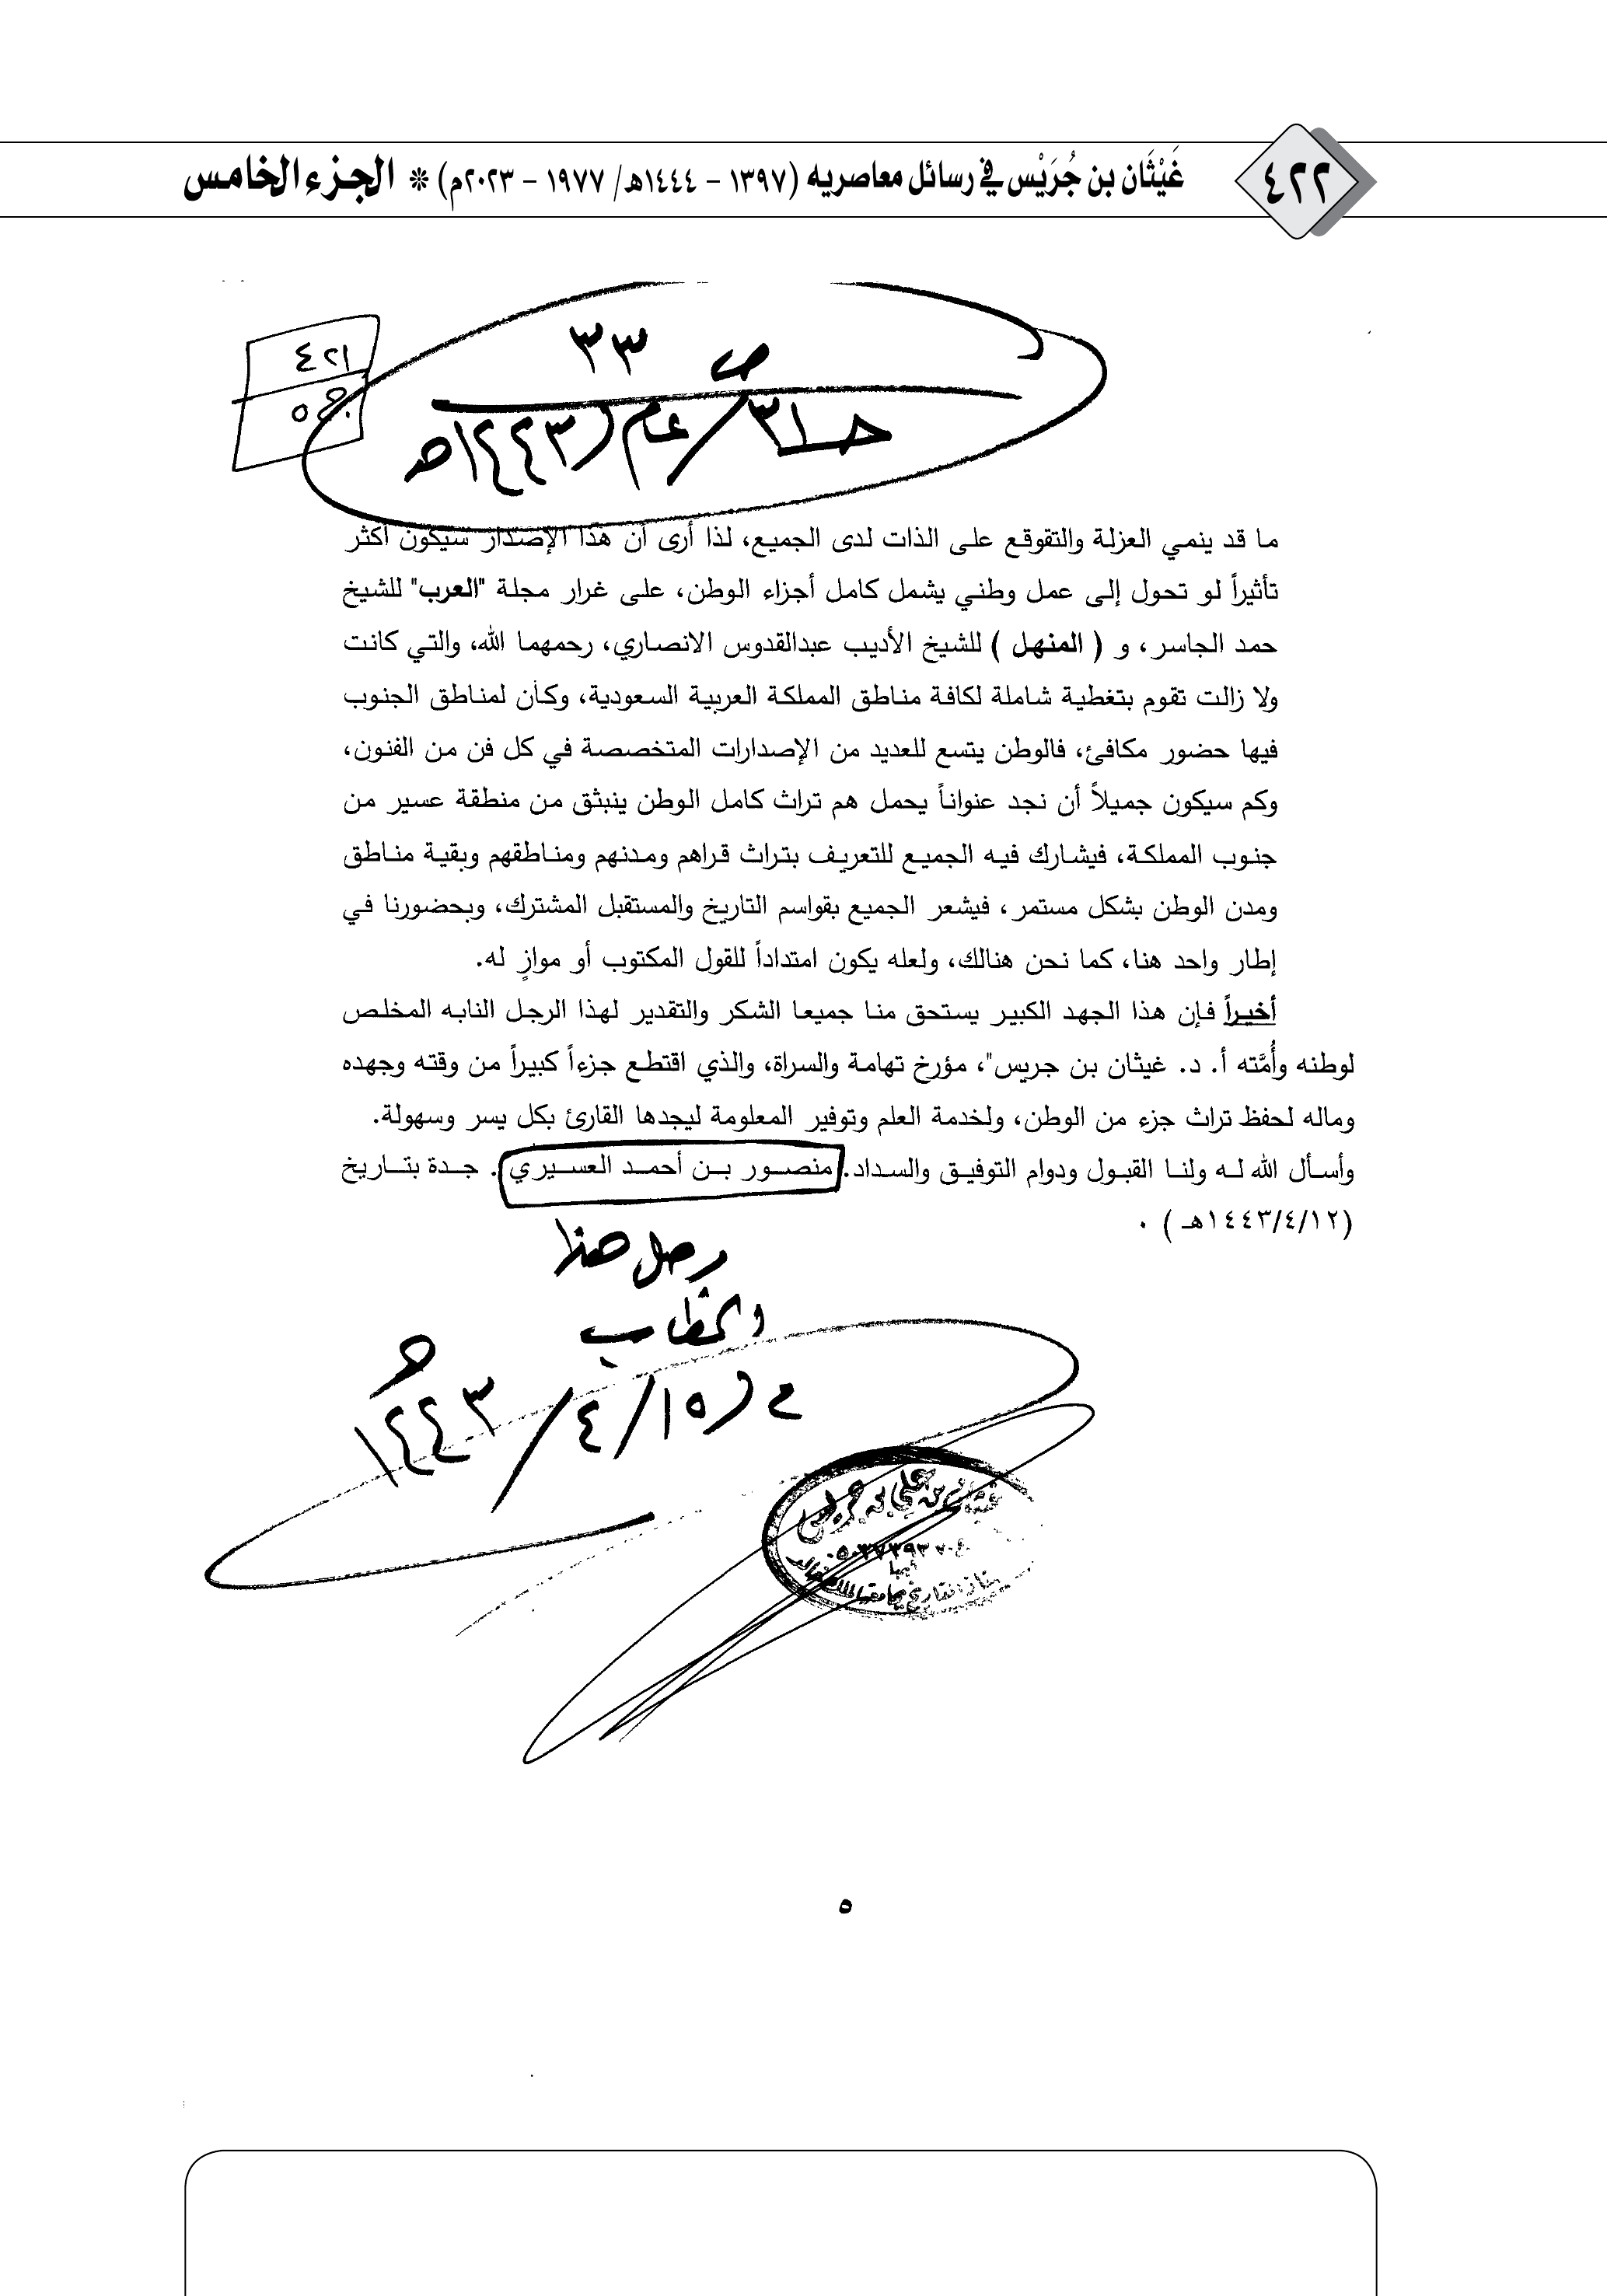 ٤٢٢
غَيْثَان بن جُرَيْس في رسائل معاصريه (١٣٩٧ - ١٤٤٤هـ/ ١٩٧٧ - ٢٠٢٣م) * الجزء الخامس
٤٢١
ص ٣٣
ج٥
حـ٣١/ عام ١٤٤٣هـ
ما قد ينمي العزلة والتقوقع على الذات لدى الجميع، لذا أرى أن هذا الإصدار سيكون أكثر
تأثيراً لو تحول إلى عمل وطني يشمل كامل أجزاء الوطن، على غرار مجلة "العرب" للشيخ
حمد الجاسر، و ( المنهل ) للشيخ الأديب عبدالقدوس الانصاري، رحمهما الله، والتي كانت
ولا زالت تقوم بتغطية شاملة لكافة مناطق المملكة العربية السعودية، وكأن لمناطق الجنوب
فيها حضور مكافئ، فالوطن يتسع للعديد من الإصدارات المتخصصة في كل فن من الفنون،
وكم سيكون جميلاً أن نجد عنواناً يحمل هم تراث كامل الوطن ينبثق من منطقة عسير من
جنوب المملكة، فيشارك فيه الجميع للتعريف بتراث قراهم ومدنهم ومناطقهم وبقية مناطق
ومدن الوطن بشكل مستمر، فيشعر الجميع بقواسم التاريخ والمستقبل المشترك، وبحضورنا في
إطار واحد هنا، كما نحن هنالك، ولعله يكون امتداداً للقول المكتوب أو موازٍ له.
أخيراً فإن هذا الجهد الكبير يستحق منا جميعا الشكر والتقدير لهذا الرجل النابه المخلص
لوطنه وأُمَّته أ. د. غيثان بن جريس"، مؤرخ تهامة والسراة، والذي اقتطع جزءاً كبيراً من وقته وجهده
وماله لحفظ تراث جزء من الوطن، ولخدمة العلم وتوفير المعلومة ليجدها القارئ بكل يسر وسهولة.
وأسأل الله له ولنا القبول ودوام التوفيق والسداد. منصور بن أحمد العسيري . جدة بتاريخ
(١٤٤٣/٤/١٢هـ ) .
وصل هذا
الخطاب
في ١٥/٤/١٤٤٣هـ
غيثان بن علي بن جريس
أبها
٥